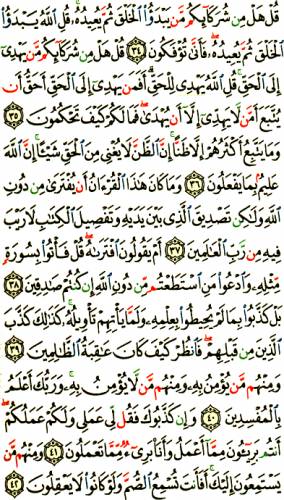 قُلْ هَلْ مِن شُرَكَآئِكُم مَّن يَبْدَؤُا۟ ٱلْخَلْقَ ثُمَّ يُعِيدُهُۥ ۚ قُلِ ٱللَّهُ يَبْدَؤُا۟
ٱلْخَلْقَ ثُمَّ يُعِيدُهُۥ ۖ فَأَنَّىٰ تُؤْفَكُونَ ٣٤ قُلْ هَلْ مِن شُرَكَآئِكُم مَّن يَهْدِىٓ
إِلَى ٱلْحَقِّ ۚ قُلِ ٱللَّهُ يَهْدِى لِلْحَقِّ ۗ أَفَمَن يَهْدِىٓ إِلَى ٱلْحَقِّ أَحَقُّ أَن
يُتَّبَعَ أَمَّن لَّا يَهِدِّىٓ إِلَّآ أَن يُهْدَىٰ ۖ فَمَا لَكُمْ كَيْفَ تَحْكُمُونَ ٣٥
وَمَا يَتَّبِعُ أَكْثَرُهُمْ إِلَّا ظَنًّا ۚ إِنَّ ٱلظَّنَّ لَا يُغْنِى مِنَ ٱلْحَقِّ شَيْـًٔا ۚ إِنَّ ٱللَّهَ
عَلِيمٌۢ بِمَا يَفْعَلُونَ ٣٦ وَمَا كَانَ هَٰذَا ٱلْقُرْءَانُ أَن يُفْتَرَىٰ مِن دُونِ
ٱللَّهِ وَلَٰكِن تَصْدِيقَ ٱلَّذِى بَيْنَ يَدَيْهِ وَتَفْصِيلَ ٱلْكِتَٰبِ لَا رَيْبَ
فِيهِ مِن رَّبِّ ٱلْعَٰلَمِينَ ٣٧ أَمْ يَقُولُونَ ٱفْتَرَىٰهُ ۖ قُلْ فَأْتُوا۟ بِسُورَةٍ
مِّثْلِهِۦ وَٱدْعُوا۟ مَنِ ٱسْتَطَعْتُم مِّن دُونِ ٱللَّهِ إِن كُنتُمْ صَٰدِقِينَ ٣٨
بَلْ كَذَّبُوا۟ بِمَا لَمْ يُحِيطُوا۟ بِعِلْمِهِۦ وَلَمَّا يَأْتِهِمْ تَأْوِيلُهُۥ ۚ كَذَٰلِكَ كَذَّبَ
ٱلَّذِينَ مِن قَبْلِهِمْ ۖ فَٱنظُرْ كَيْفَ كَانَ عَٰقِبَةُ ٱلظَّٰلِمِينَ ٣٩
وَمِنْهُم مَّن يُؤْمِنُ بِهِۦ وَمِنْهُم مَّن لَّا يُؤْمِنُ بِهِۦ ۚ وَرَبُّكَ أَعْلَمُ
بِٱلْمُفْسِدِينَ ٤٠ وَإِن كَذَّبُوكَ فَقُل لِّى عَمَلِى وَلَكُمْ عَمَلُكُمْ ۖ
أَنتُم بَرِيٓـُٔونَ مِمَّآ أَعْمَلُ وَأَنَا۠ بَرِىٓءٌ مِّمَّا تَعْمَلُونَ ٤١ وَمِنْهُم مَّن
يَسْتَمِعُونَ إِلَيْكَ ۚ أَفَأَنتَ تُسْمِعُ ٱلصُّمَّ وَلَوْ كَانُوا۟ لَا يَعْقِلُونَ ٤٢